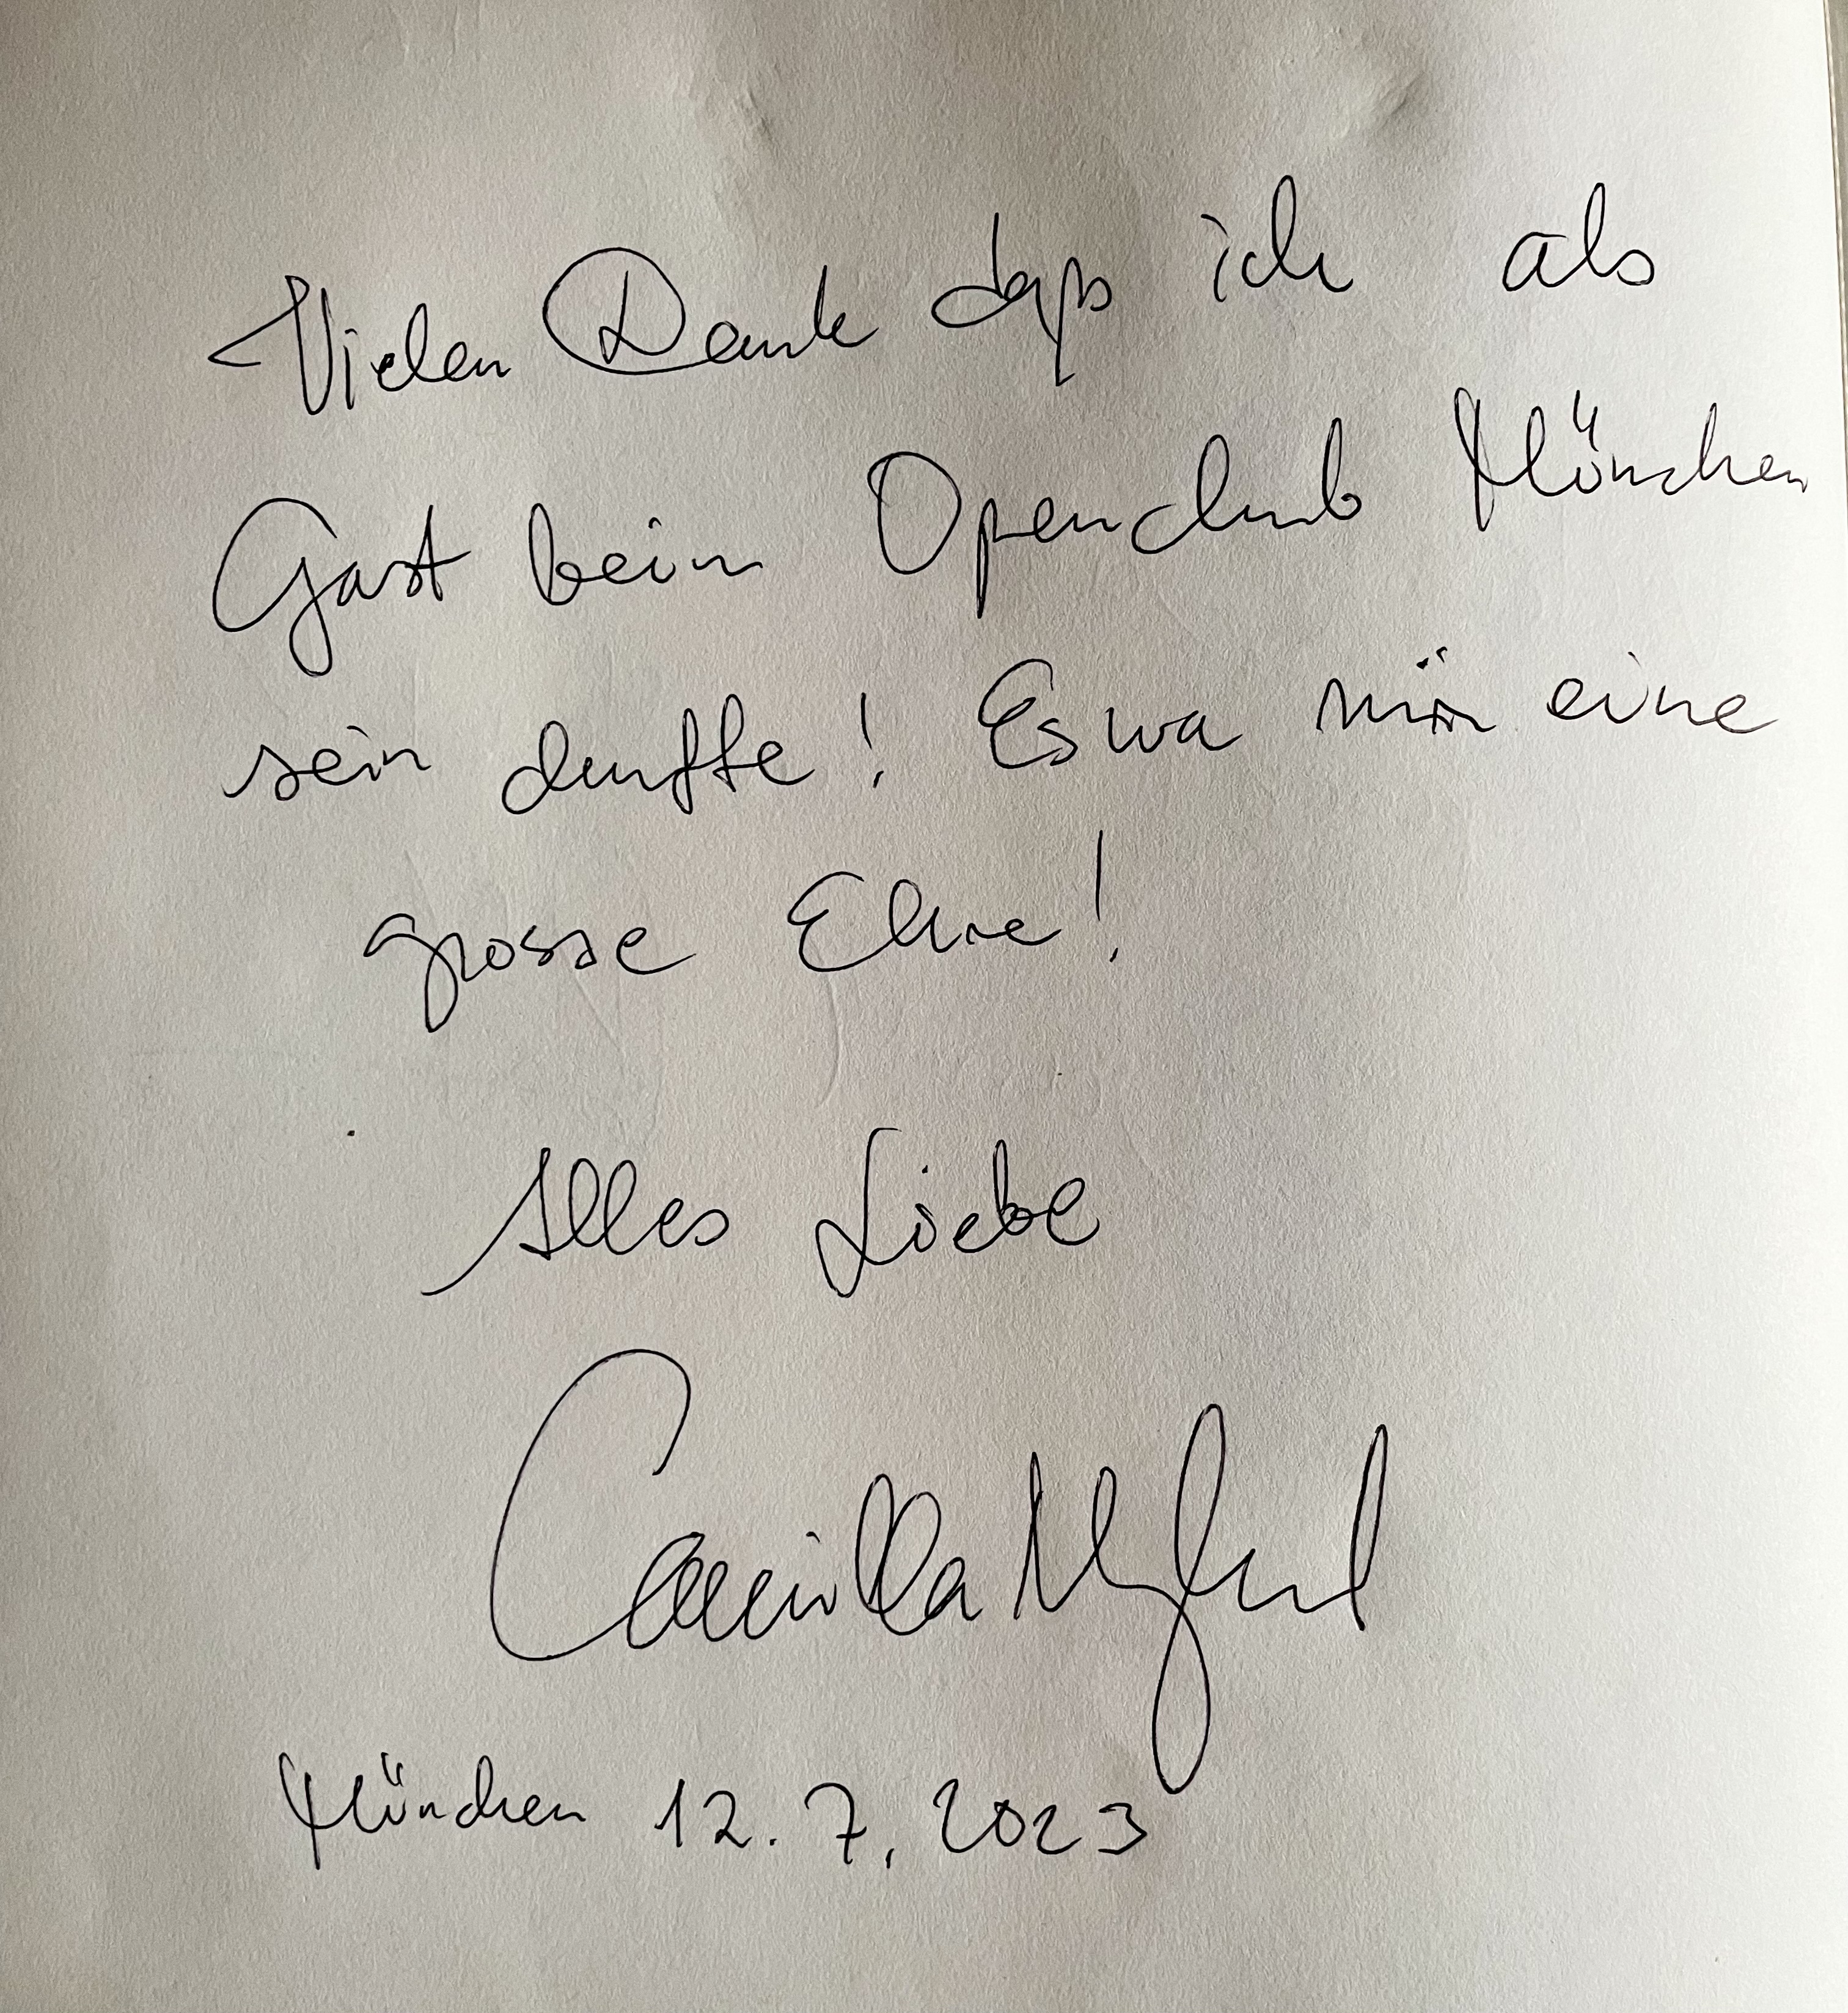 Vielen Dank daß ich als
Gast beim Opernclub München
sein durfte! Es wa mir eine
grosse Ehre!
Alles Liebe
Camilla Nylund
München 12.7.2023